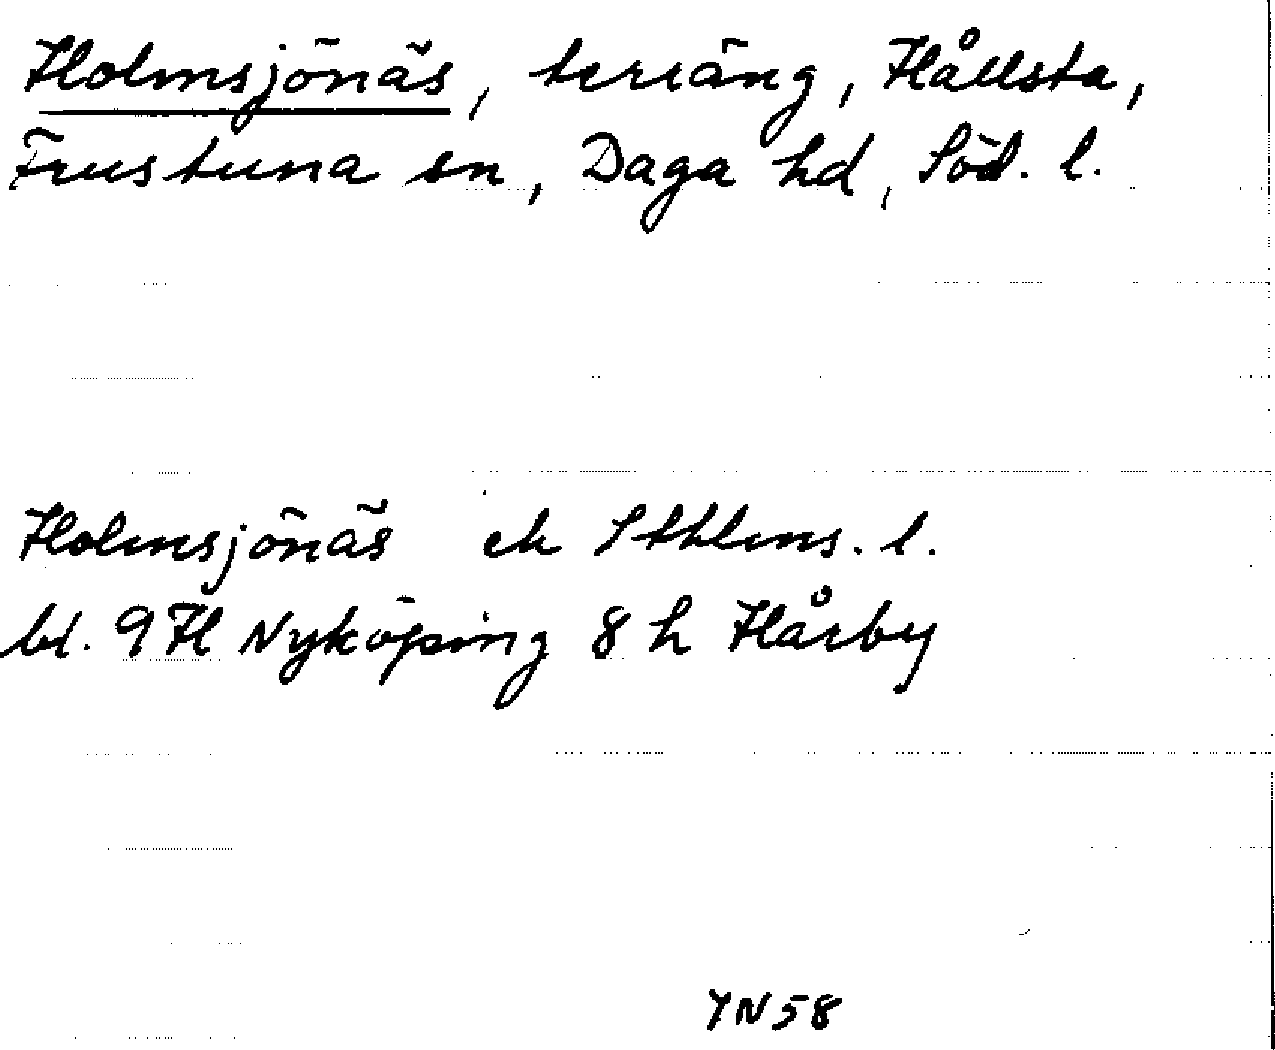 Holmsjönäs, terräng, Hållsta,
Frustuna sn, Daga hd, Söd. l.
Holmsjönäs ek Sthlms. l.
bl. 9H Nyköping 8 h Hårby
YN58